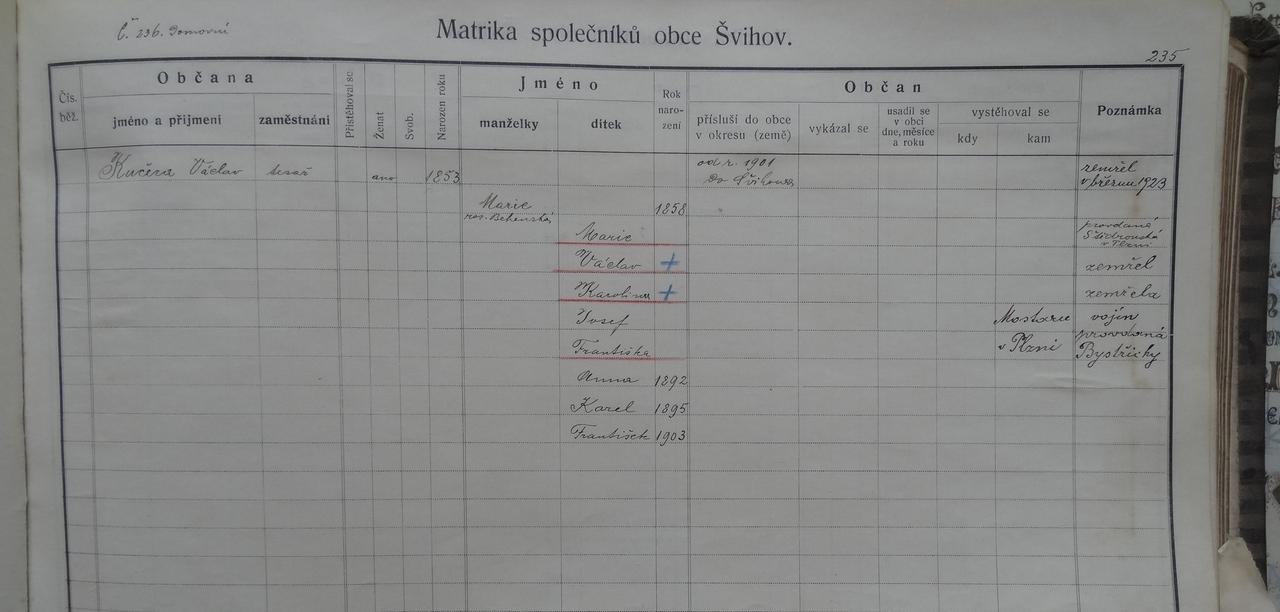 Č. 236. Domovní
Matrika společníků obce Švihov.
235
Čís. běž.
Občana
jméno a přijmení
zaměstnání
Přistěhoval se
Ženat
Svob.
Narozen roku
Jméno
manželky
ditek
Rok narození
Občan
přísluší do obce v okresu (země)
vykázal se
usadil se v obci dne, měsíce a roku
vystěhoval se
kdy
kam
Poznámka
Kučera Václav tesař ano 1853 od r. 1901 zemřel
do Švihova v březnu 1923
Marie 1858
roz.
Marie provdaná
v Plzni
Václav + zemřel
Karolina + zemřela
Josef vojín
Františka v Plzni provdaná
Bystřický
Anna 1892
Karel 1895
František 1903